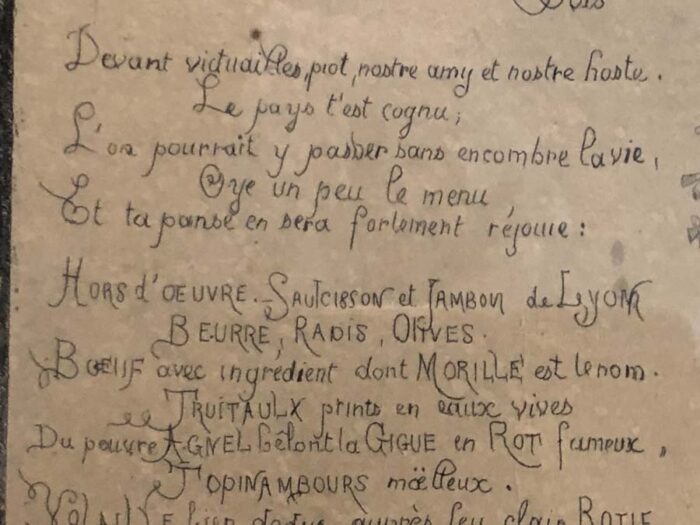 Bois
Devant victuailles, piot, nostre amy et nostre hoste.
Le pays t'est cognu;
L'on pourrait y passer sans encombre la vie,
Oye un peu le menu,
Et ta panse en sera fortement réjouie:
HORS d'OEUVRE. SAUTCISSON et JAMBON de LYON
BEURRE, RADIS, OLIVES.
BOEUF avec ingrédient dont MORILLE est le nom.
TRUITAULX prints en eaux vives
Du pauvre AGNEL bêlont la GIGUE en ROTI fameux,
TOPINAMBOURS mœlleux.
bien dodue auprès feu clair ROTIE